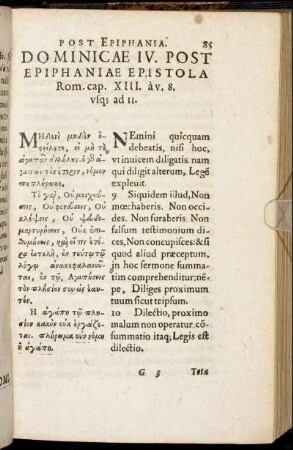 POST EPIPHANIA. 85
DOMINICAE IV. POST
EPIPHANIAE EPISTOLA
Rom. cap. XIII. àv. 8.
vsq; ad 11.
Μηδενὶ μηδὲν ὀ-
φείλετε, εἰ μὴ τὸ
ἀγαπᾶν ἀλλήλους. ὁ γὸ ἀ-
γαπῶν τὸν ἕτερον, νόμον
πεπλήρωκε.
Τὸ γὸ, Οὐ μοιχεύ-
σεις, Οὐ φονεύσεις, Οὐ
κλέψεις, Οὐ ψευδο-
μαρτυρήσεις, Οὐκ ἐπι-
θυμήσεις, καὶ εἴ τις ἑτέ-
ρα ἐντολὴ, ἐν τούτῳ τῷ
λόγῳ ἀνακεφαλαιοῦ-
ται, ἐν τῷ, Ἀγαπήσεις
τὸν πλησίον σου ὡς ἑαυ-
τόν.
Η ἀγάπη τῷ πλη-
σίον κακὸν οὐκ ἐργάζε-
ται. πλήρωμα οὖν νόμου
ἡ ἀγάπη.
NEmini quicquam
debeatis, nisi hoc,
vt inuicem diligatis. nam
qui diligit alterum, Legẽ
expleuit.
9 Siquidem illud, Non
mœchaberis. Non occi-
des. Non furaberis. Non
falsum testimonium di-
ces, Non concupisces: & si
quod aliud præceptum,
in hoc sermone summa-
tim comprehenditur: nẽ-
pe, Diliges proximum
tuum sicut teipsum.
10 Dilectio, proximo
malum non operatur. cõ-
summatio itaq; Legis est
dilectio.
G 3 Tota